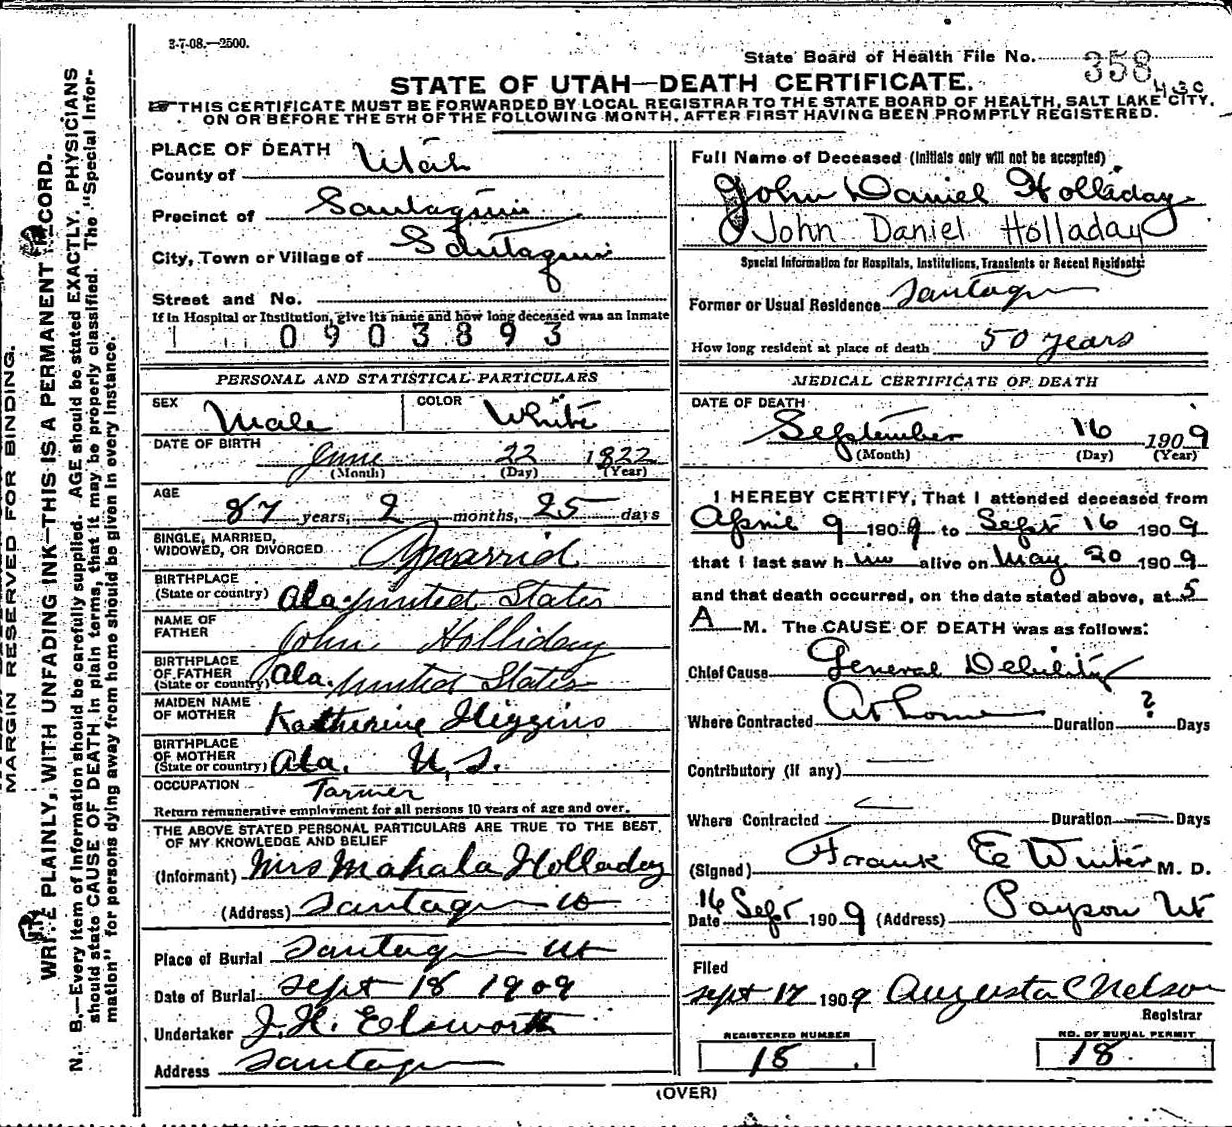 3-7-08.—2500.
State Board of Health File No. 358
430
STATE OF UTAH—DEATH CERTIFICATE.
THIS CERTIFICATE MUST BE FORWARDED BY LOCAL REGISTRAR TO THE STATE BOARD OF HEALTH, SALT LAKE CITY,
ON OR BEFORE THE 5TH OF THE FOLLOWING MONTH, AFTER FIRST HAVING BEEN PROMPTLY REGISTERED.
MARGIN RESERVED FOR BINDING.
WRITE PLAINLY, WITH UNFADING INK—THIS IS A PERMANENT RECORD.
N. B.—Every item of information should be carefully supplied. AGE should be stated EXACTLY. PHYSICIANS
should state CAUSE OF DEATH in plain terms, that it may be properly classified. The "Special Infor-
mation" for persons dying away from home should be given in every instance.
PLACE OF DEATH
County of Utah
Precinct of Santaquin
City, Town or Village of Santaquin
Street and No.
If in Hospital or Institution, give its name and how long deceased was an inmate
0903893
PERSONAL AND STATISTICAL PARTICULARS
SEX Male
COLOR White
DATE OF BIRTH
June 22 1822
(Month) (Day) (Year)
AGE
87 years, 2 months, 25 days
SINGLE, MARRIED,
WIDOWED, OR DIVORCED married
BIRTHPLACE
(State or country) Ala. United States
NAME OF
FATHER John Holliday
BIRTHPLACE
OF FATHER
(State or country) Ala. United States
MAIDEN NAME
OF MOTHER Katherine Higgins
BIRTHPLACE
OF MOTHER
(State or country) Ala. U.S.
OCCUPATION Farmer
Return remunerative employment for all persons 10 years of age and over.
THE ABOVE STATED PERSONAL PARTICULARS ARE TRUE TO THE BEST
OF MY KNOWLEDGE AND BELIEF
(Informant) Mrs Mahala Holladay
(Address) Santaquin Ut
Place of Burial Santaquin Ut
Date of Burial Sept 18 1909
Undertaker J. H. Elsworth
Address Santaquin
Full Name of Deceased (Initials only will not be accepted)
John Daniel Holladay
John Daniel Holladay
Special Information for Hospitals, Institutions, Transients or Recent Residents:
Former or Usual Residence Santaquin
How long resident at place of death 50 years
MEDICAL CERTIFICATE OF DEATH
DATE OF DEATH
September 16 1909
(Month) (Day) (Year)
I HEREBY CERTIFY, That I attended deceased from
April 9 1909 to Sept 16 1909
that I last saw him alive on May 20 1909
and that death occurred, on the date stated above, at 5
A M. The CAUSE OF DEATH was as follows:
Chief Cause General Debility
Where Contracted At home Duration ? Days
Contributory (if any) —
Where Contracted — Duration — Days
(Signed) Frank E Winter M. D.
16
Date Sept 1909 (Address) Payson Ut
Filed
Sept 17 1909 Augusta C Nelson
Registrar
REGISTERED NUMBER
18
NO. OF BURIAL PERMIT
18
(OVER)